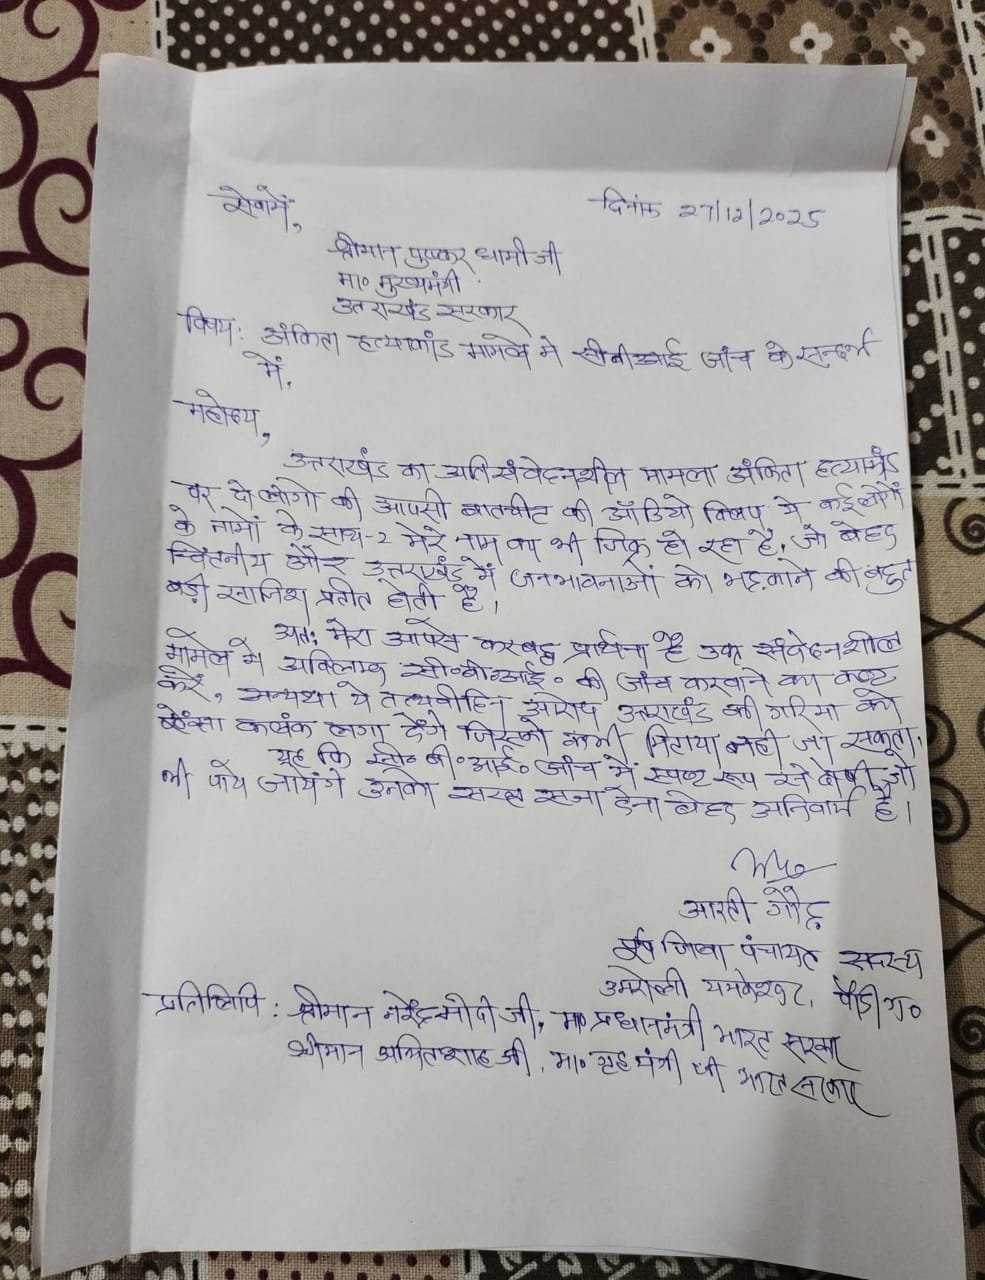 सेवामें,
दिनांक 27/12/2025
श्रीमान पुष्कर धामी जी
मा० मुख्यमंत्री
उत्तराखंड सरकार
विषय: अंकिता हत्याकांड मामले मे सीबीआई जांच के सन्दर्भ
में,
महोदय,
उत्तराखंड का अतिसंवेदनशील मामला अंकिता हत्याकांड
पर दो लोगो की आपसी बातचीत की ऑडियो क्लिप मे कई लोगों
के नामों के साथ-2 मेरे नाम का भी जिक्र हो रहा है, जो बेहद
चिंतनीय और उत्तराखंड में जनभावनाओं को भड़काने की बहुत
बड़ी साजिश प्रतीत होती है।
अतः मेरा आपसे करबद्ध प्रार्थना है उक्त संवेदनशील
मामले मे अविलम्ब सी०बी०आई० की जांच करवाने का कष्ट
करें, अन्यथा ये तथ्यविहिन आरोप उत्तराखंड की गरिमा को
ऐसा कलंक लगा देंगे जिसको कभी मिटाया नही जा सकता।
यह कि सी० बी० आई० जांच में स्पष्ट रूप से दोषी जो
भी पाये जायेंगे उनको सख्त सजा देना बेहद अनिवार्य है।
आरती गौड़
पूर्व जिला पंचायत सदस्य
उमरोली यमकेश्वर, पौड़ी ग०
प्रतिलिपि : श्रीमान नरेंद्र मोदी जी, मा० प्रधानमंत्री भारत सरकार
श्रीमान अमित शाह जी, मा० गृह मंत्री जी भारत सरकार